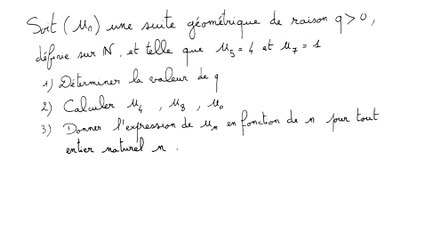 Soit (u_n) une suite géométrique de raison q > 0,
définie sur ℕ, et telle que u_5 = 4 et u_7 = 1
1) Déterminer la valeur de q
2) Calculer u_4, u_8, u_0
3) Donner l'expression de u_n en fonction de n pour tout
entier naturel n.